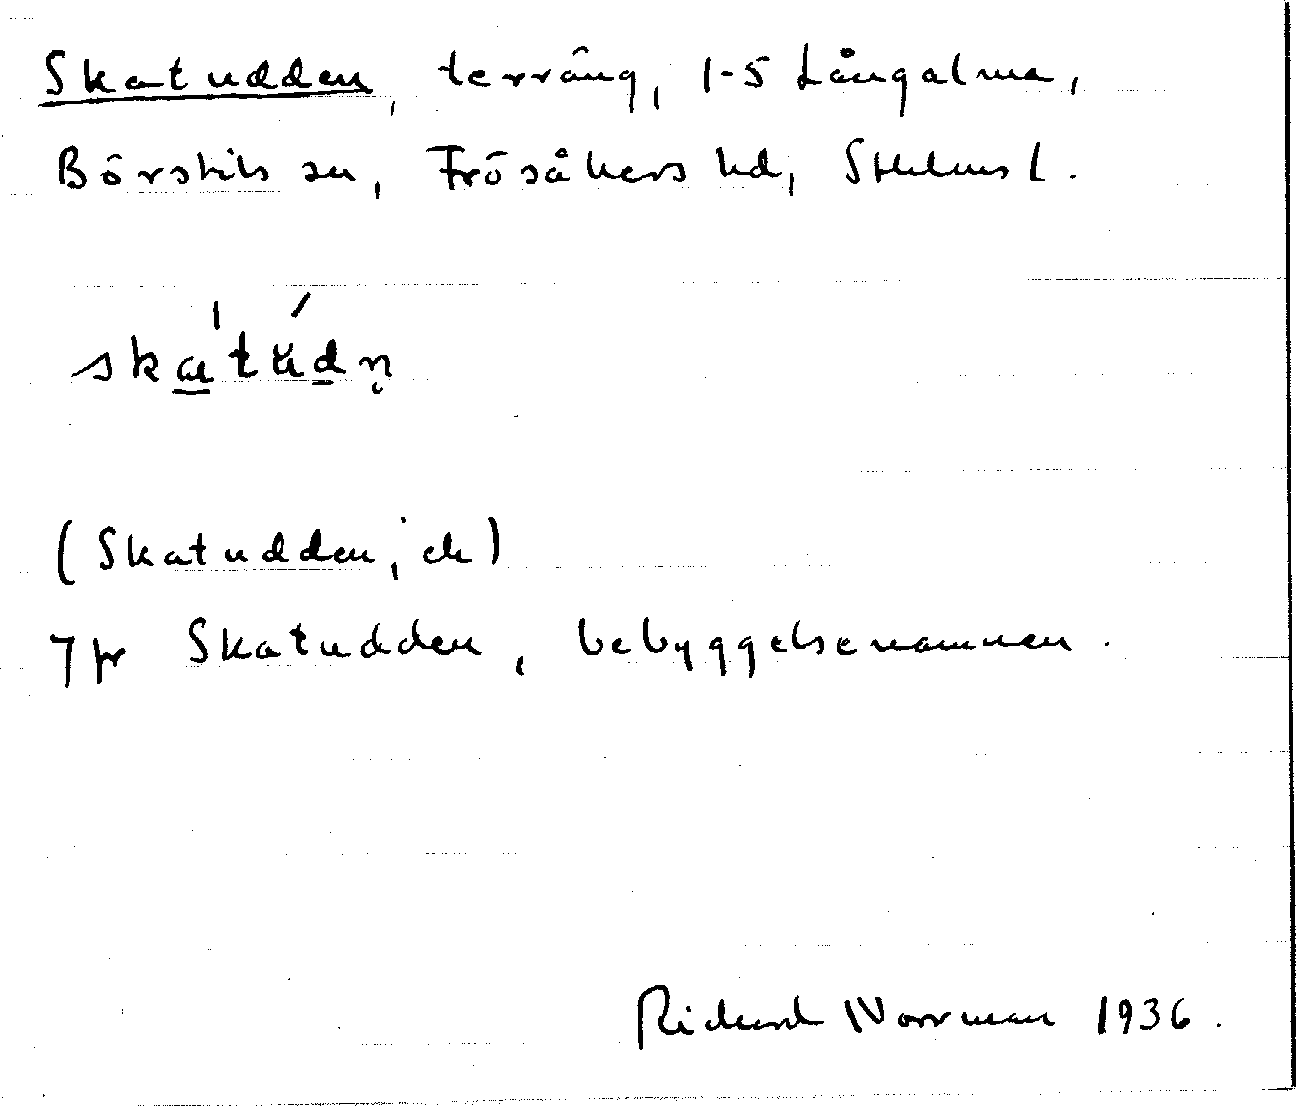 Skatudden, terräng, 1-5 Långalma,
Börstils sn, Frösåkers hd, Sthlms l.
skatudn̥
(Skatudden, ek)
Jfr Skatudden, bebyggelsenamnen.
Richard Norrman 1936.